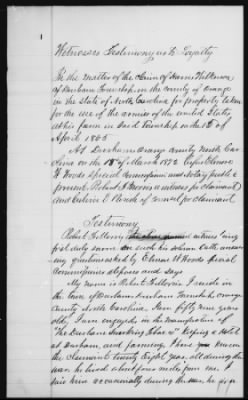 Witnesses Testimony as to Loyalty
In the matter of the Claim of Harris Wilkerson
of Durham Township in the county of Orange
in the state of North Carolina for property taken
for the use of the armies of the United States
at his farm in said Township on the 15 of
April 1865
At Durham Orange County North Ca-
rolina on the 18th of March 1872 before
W Woods special Commissioner and notary public
present, Robert F Morris a witness for claimant
and of Counsel for claimant
Testimony
Robert F Morris witness being
first duly sworn on his solemn oath
questioned by W Woods special
Commissioner deposes and says
My name is Robert F Morris I reside in
the town of Durham Durham Township, Orange
County North Carolina. I am fifty nine years
old, I am engaged in the manufacture of
"The Durham Smoking Tobacco" Keeping a Hotel
at Durham, and farming, I have known
the claimant twenty eight years, all during the
war, he lived about four miles from me. I
saw him occasionally during the war, he